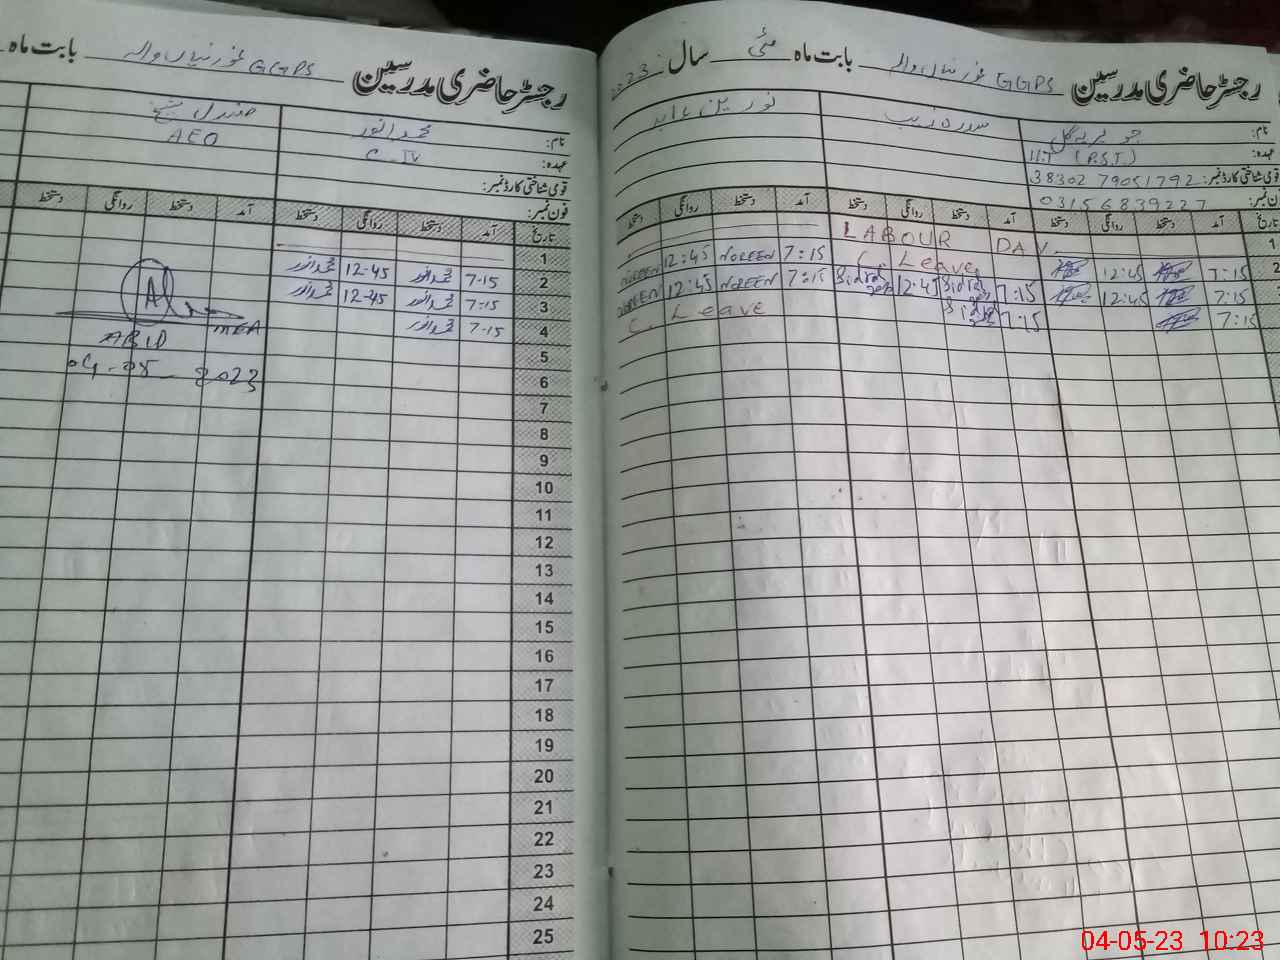 رجسٹر حاضری مدرسین GGPS بابت ماہ مئی سال 2023
نام: جویریہ گل سدرہ زیب نورین عابد
عہدہ: (P.S.T)
قومی شناختی کارڈ نمبر:
فون نمبر: 03156839227
تاریخ آمد دستخط روانگی دستخط آمد دستخط روانگی دستخط آمد دستخط روانگی دستخط
1 LABOUR DAY
2 7:15 12:45 C. Leave 7:15 NOREEN 12:45 NOREEN
7:15 12:45 7:15 Sidra 12:45 Sidra 7:15 NOREEN 12:45 NOREEN
7:15 7:15 Sidra C. Leave
رجسٹر حاضری مدرسین GGPS بابت ماہ
نام: محمد انور
عہدہ: C-IV AEO
قومی شناختی کارڈ نمبر:
فون نمبر:
تاریخ آمد دستخط روانگی دستخط دستخط روانگی دستخط آمد
1
2 7-15 محمد انور 12-45 محمد انور
3 7-15 محمد انور 12-45 محمد انور
4 7-15 محمد انور
MEA
ABID
04-05-2023
5
6
7
8
9
10
11
12
13
14
15
16
17
18
19
20
21
22
23
24
25
04-05-23 10:23